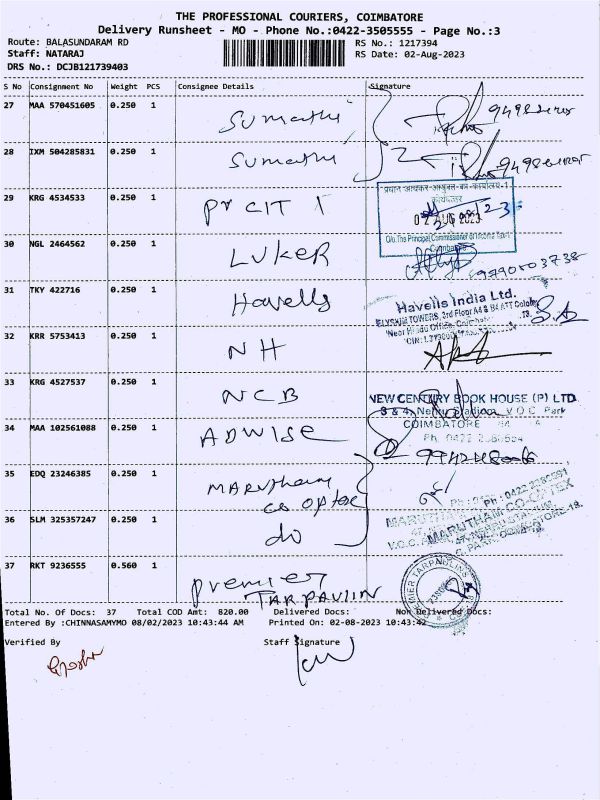 THE PROFESSIONAL COURIERS, COIMBATORE
Delivery Runsheet - MO - Phone No.:0422-3505555 - Page No.:3
Route: BALASUNDARAM RD
RS No.: 1217394
Staff: NATARAJ
RS Date: 02-Aug-2023
DRS No.: DCJB121739403
S No Consignment No Weight PCS Consignee Details Signature
27 MAA 570451605 0.250 1 Sumathi
28 IXM 504285831 0.250 1 Sumathi
29 KRG 4534533 0.250 1 Pr CIT 1
प्रधान आयकर आयुक्त का कार्यालय-1
कोयंबत्तूर
02 AUG 2023
O/o. The Principal Commissioner of Income Tax-1
Coimbatore
30 NGL 2464562 0.250 1 LUKER
9790003738
31 TKY 422716 0.250 1 Havells
Havells India Ltd.
ELYSIUM TOWERS, 3rd Floor A4 & B4 ATT Colony
32 KRR 5753413 0.250 1 NH
33 KRG 4527537 0.250 1 NCB
NEW CENTURY BOOK HOUSE (P) LTD
Nehru Stadium V.O.C Park
COIMBATORE
Ph. 0422 2380554
34 MAA 102561088 0.250 1 ADWISE
35 EDQ 23246385 0.250 1 Marutham
co optex
MARUTHAM CO-OPTEX
36 SLM 325357247 0.250 1 do
37 RKT 9236555 0.560 1 premier
TARPAULIN
Total No. Of Docs: 37 Total COD Amt: 820.00 Delivered Docs: Non Delivered Docs:
Entered By :CHINNASAMYMO 08/02/2023 10:43:44 AM Printed On: 02-08-2023 10:43:42
Verified By Staff Signature